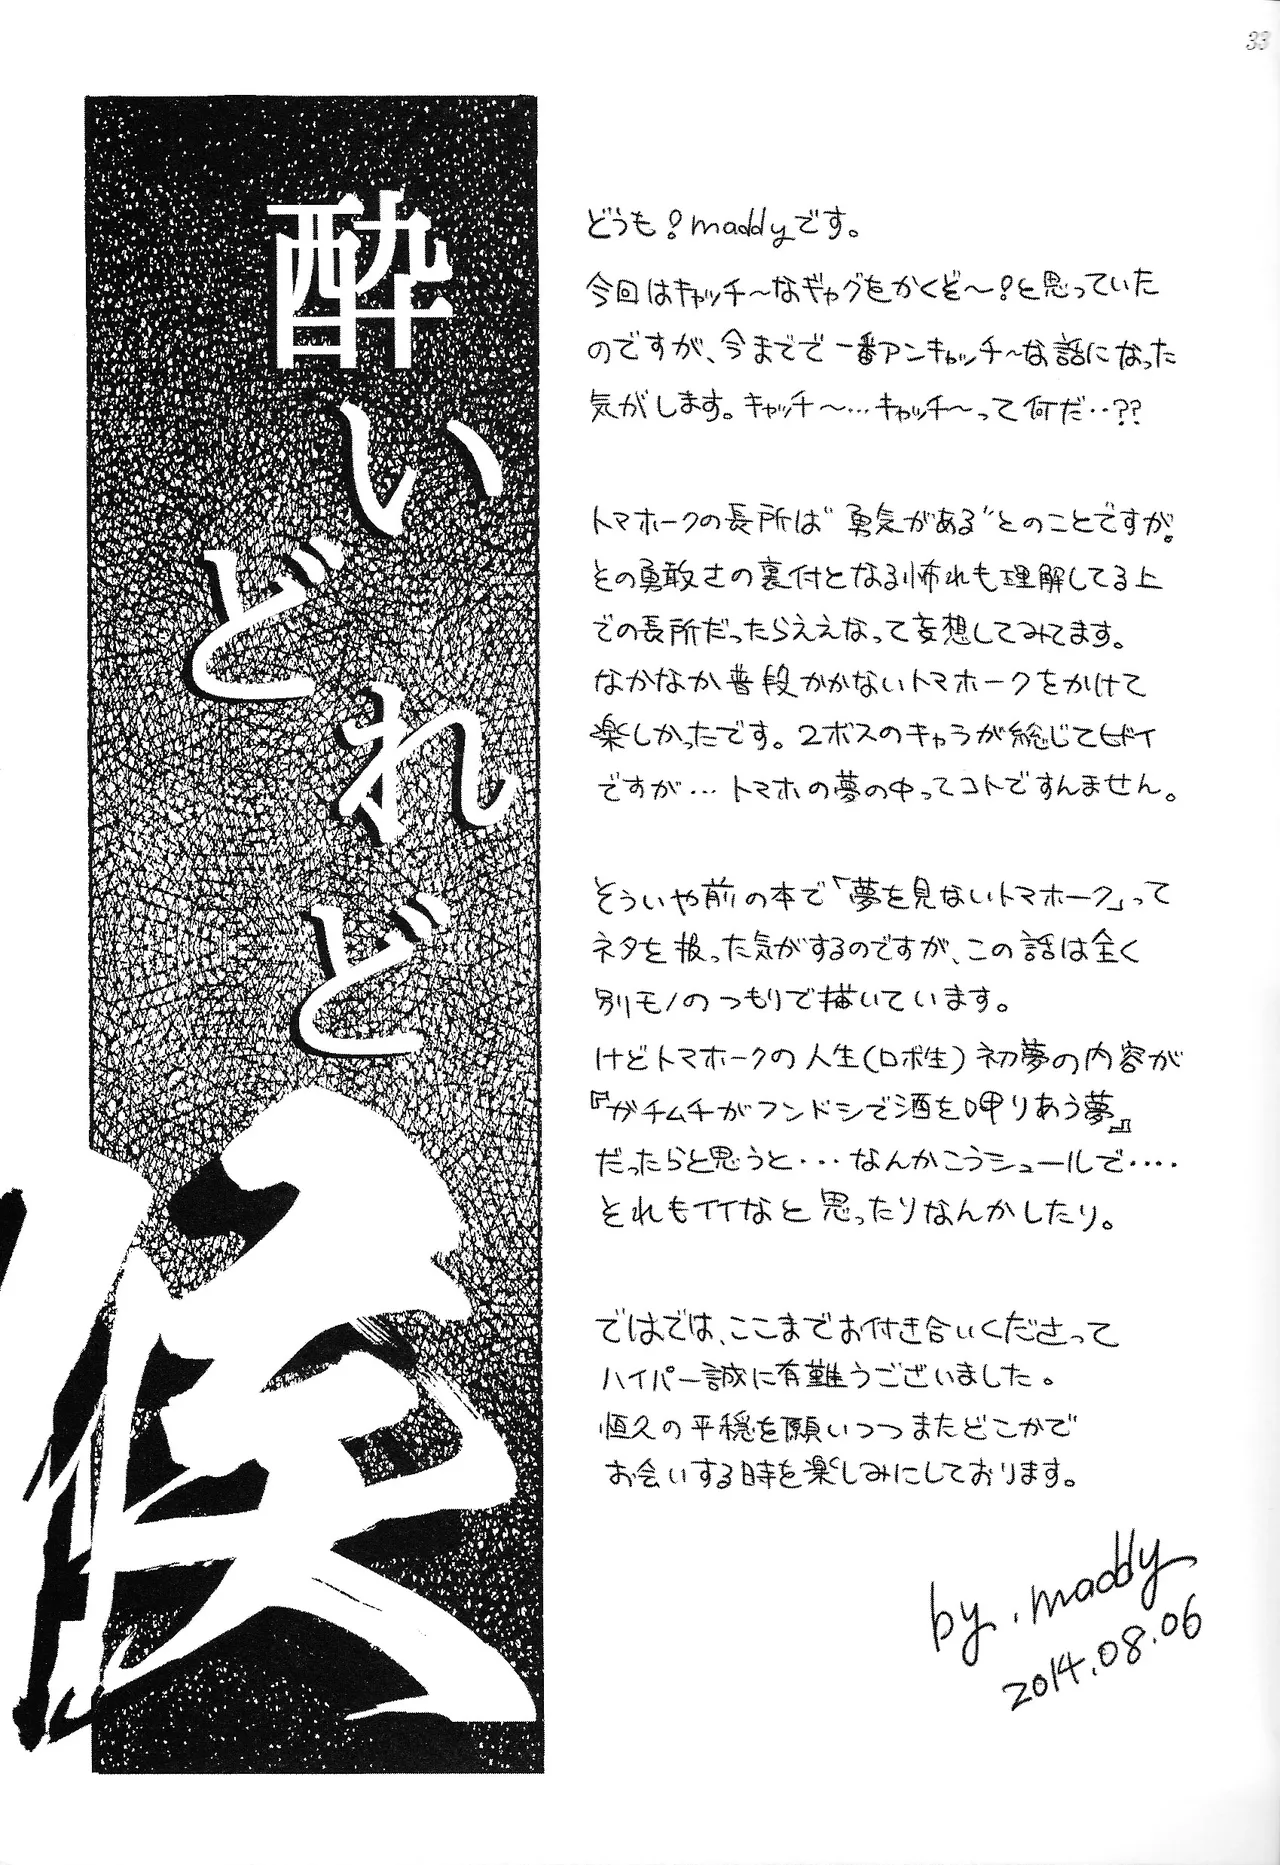 33
酔いどれど
候
どうも！maddyです。
今回はキャッチ〜なギャグをかくぞ〜！と思っていた
のですが、今までで一番アンキャッチ〜な話になった
気がします。キャッチ〜…キャッチ〜って何だ‥??
トマホークの長所は"勇気がある"とのことですが。
その勇敢さの裏付となる怖れも理解してる上
での長所だったらええなって妄想してみてます。
なかなか普段かかないトマホークをかけて
楽しかったです。2ボスのキャラが総じてヒドイ
ですが…トマホの夢の中ってコトですんません。
そういや前の本で「夢を見ないトマホーク」って
ネタを扱った気がするのですが、この話は全く
別モノのつもりで描いています。
けどトマホークの人生(ロボ生)初夢の内容が
『ガチムチがフンドシで酒を呷りあう夢』
だったらと思うと・・・なんかこうシュールで・・・・
それもイイなと思ったりなんかしたり。
ではでは、ここまでお付き合いくださって
ハイパー誠に有難うございました。
恒久の平穏を願いつつまたどこかで
お会いする時を楽しみにしております。
by.maddy
2014.08.06